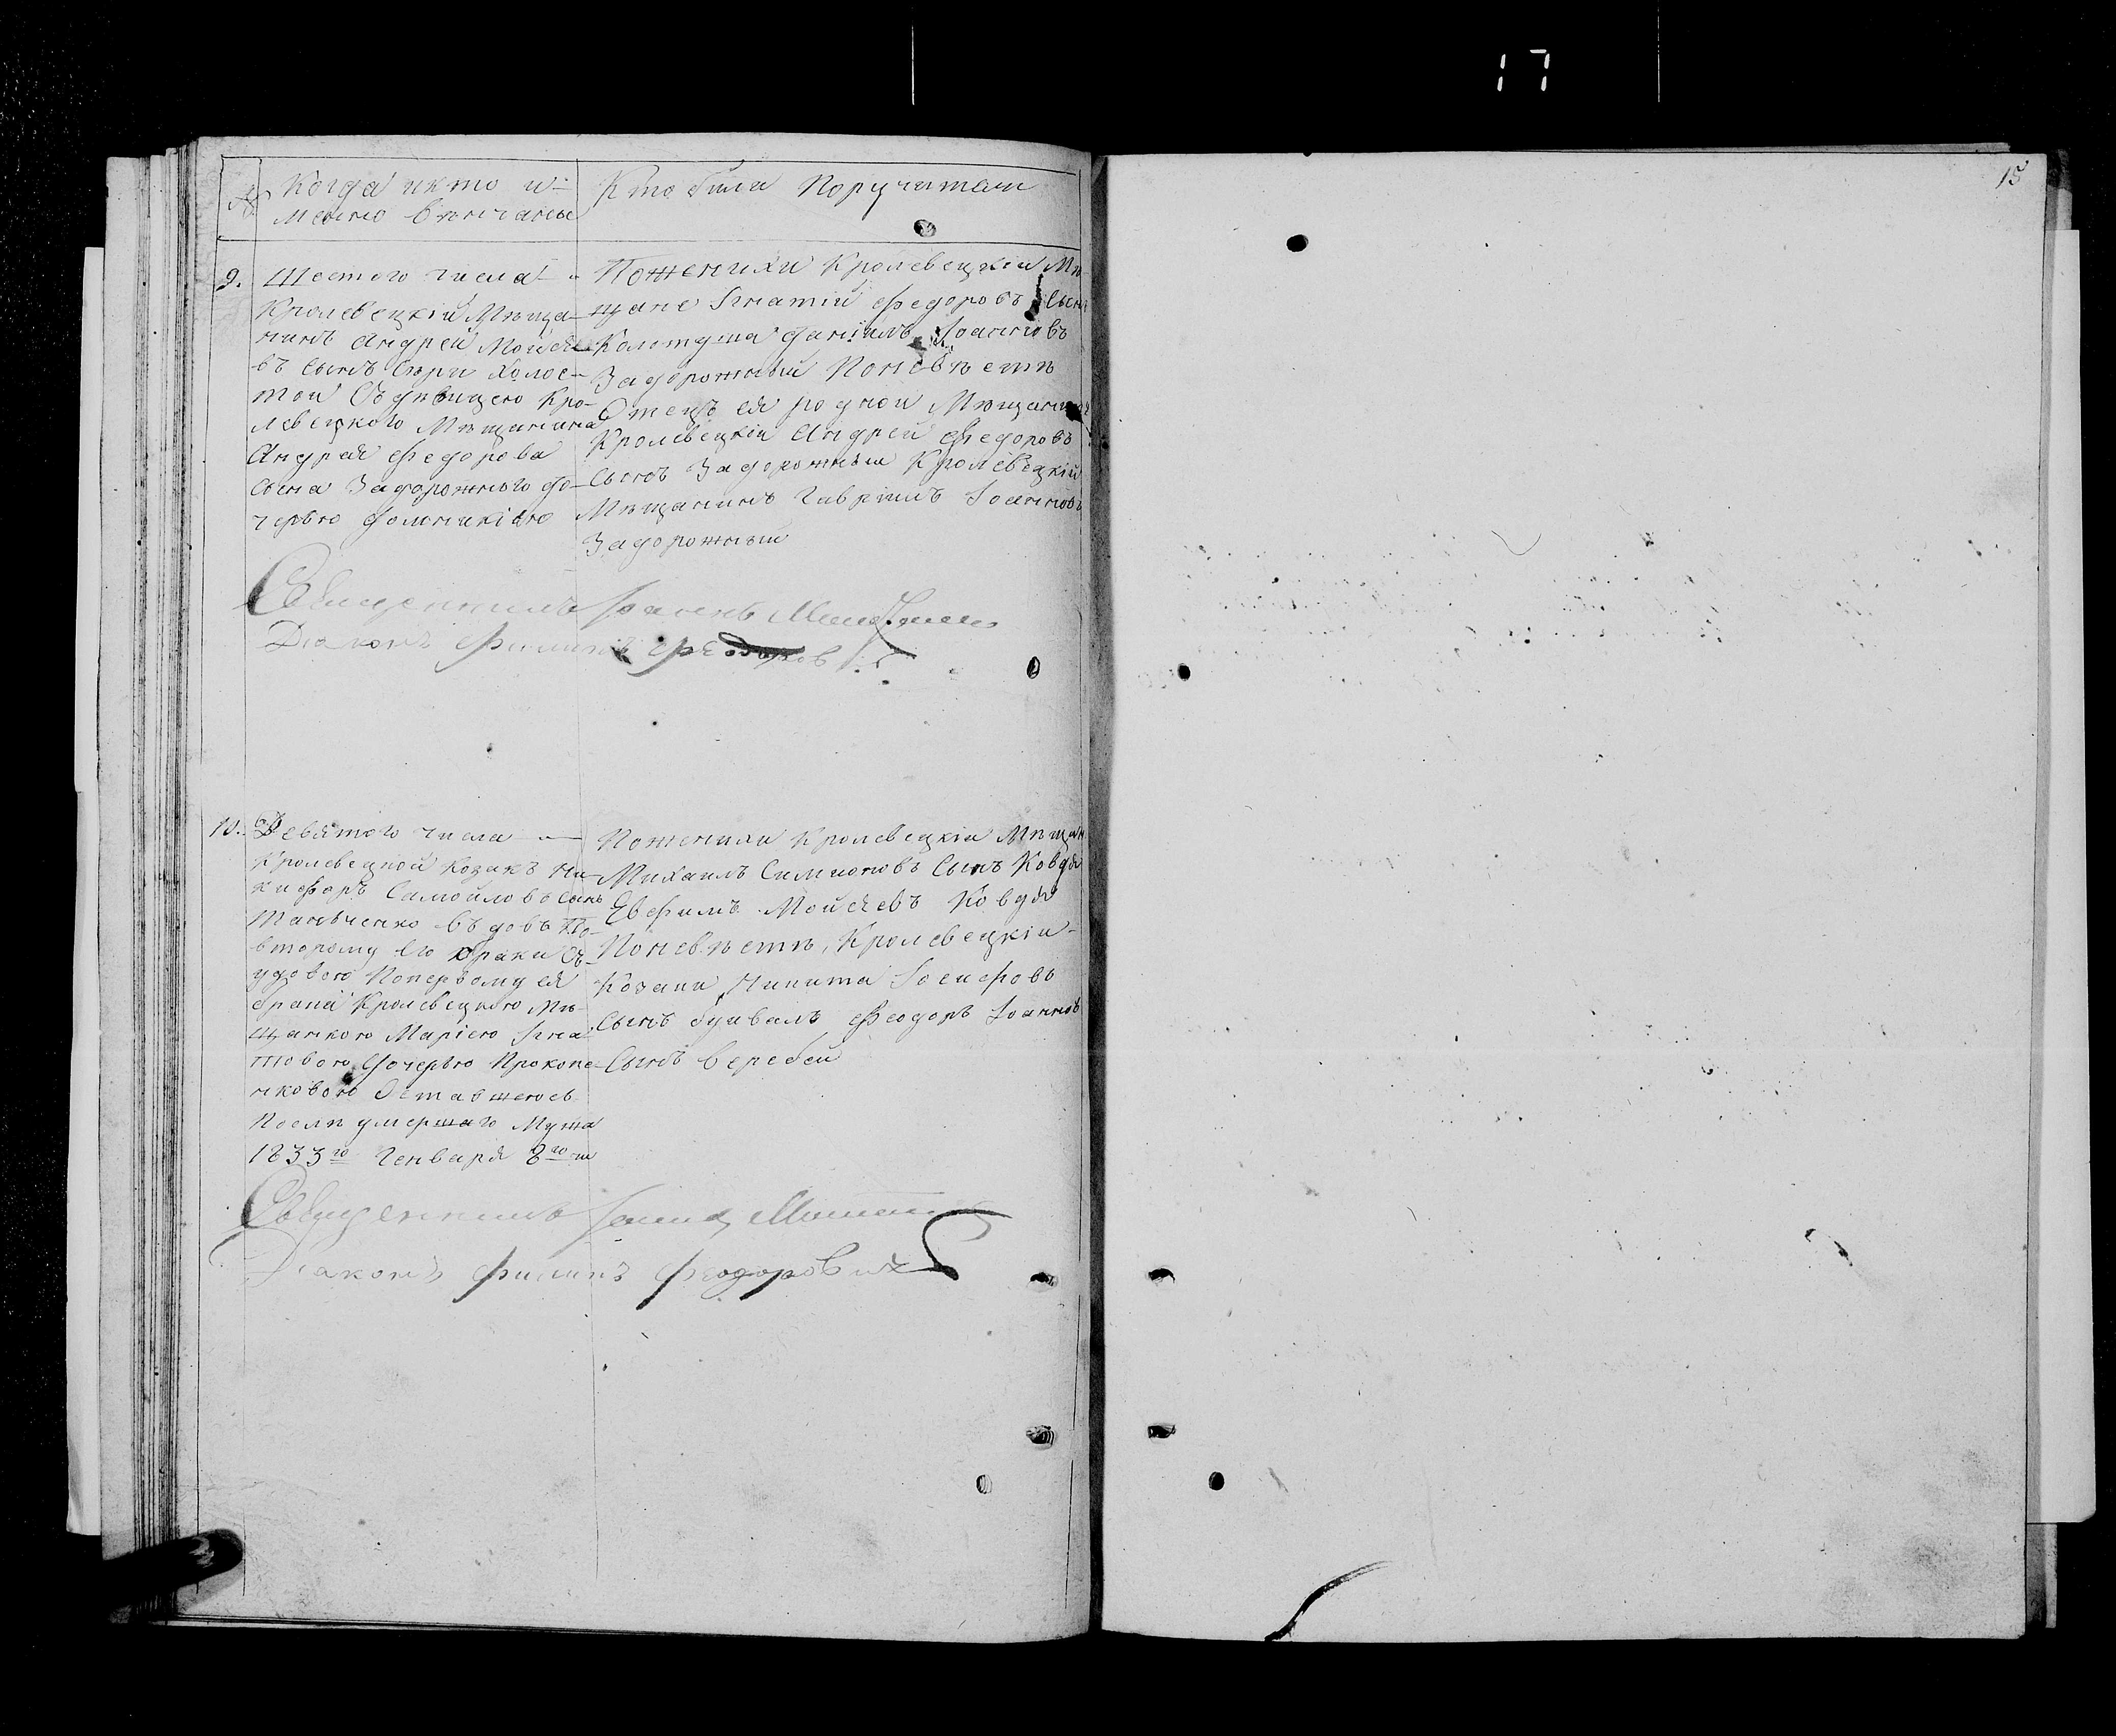 17
15
№ Когда и кто и-
менно венчаны
Кто были Поручители
9. Шестого числа
Кролевецкій Мѣща-
нинъ Андрей Мойсѣе-
въ сынъ холос-
той Съ дѣвицею Кро-
левецкого Мѣщанина
Андрея Федорова
сына Задорожнього до-
черью
Поженихи Кролевецкіи Мѣ
щане Игнатій Федоровъ Сынъ
Калатуша Даніилъ Іоанновъ
Задорожный Поневѣстѣ
Отецъ ея родной Мѣщанинъ
Кролевецкіи Андрей Федоровъ
Сынъ Задорожный Кролевецкій
Мѣщанинъ Гавріилъ Іоанновъ
Задорожный
Священникъ
Діаконъ Филипъ
10. Девятого числа
Кролевецкой Козакъ Ни-
кифоръ Самойловъ Сынъ
Танченко вдовъ По-
второму Его браки Съ
удовою Поперьвому ея
браки Кролевецкою Мѣ-
щанкою Маріею Игна-
товою Дочерью Прокопе-
нковою Оставшеюсь
Послѣ умершаго Мужа
1833го Генваря 8го
Поженихи Кролевецкіи Мѣщан
Михаилъ Симионовъ Сынъ Ковдя
Евфимъ Мойсѣевъ Ковдя
Поневѣстѣ, Кролевецкіи
Козаки Никита Іосифовъ
Сынъ Буивалъ Феодоръ Іоанновъ
Сынъ Веребей
Священникъ
Діаконъ Филипъ Феодоровичъ